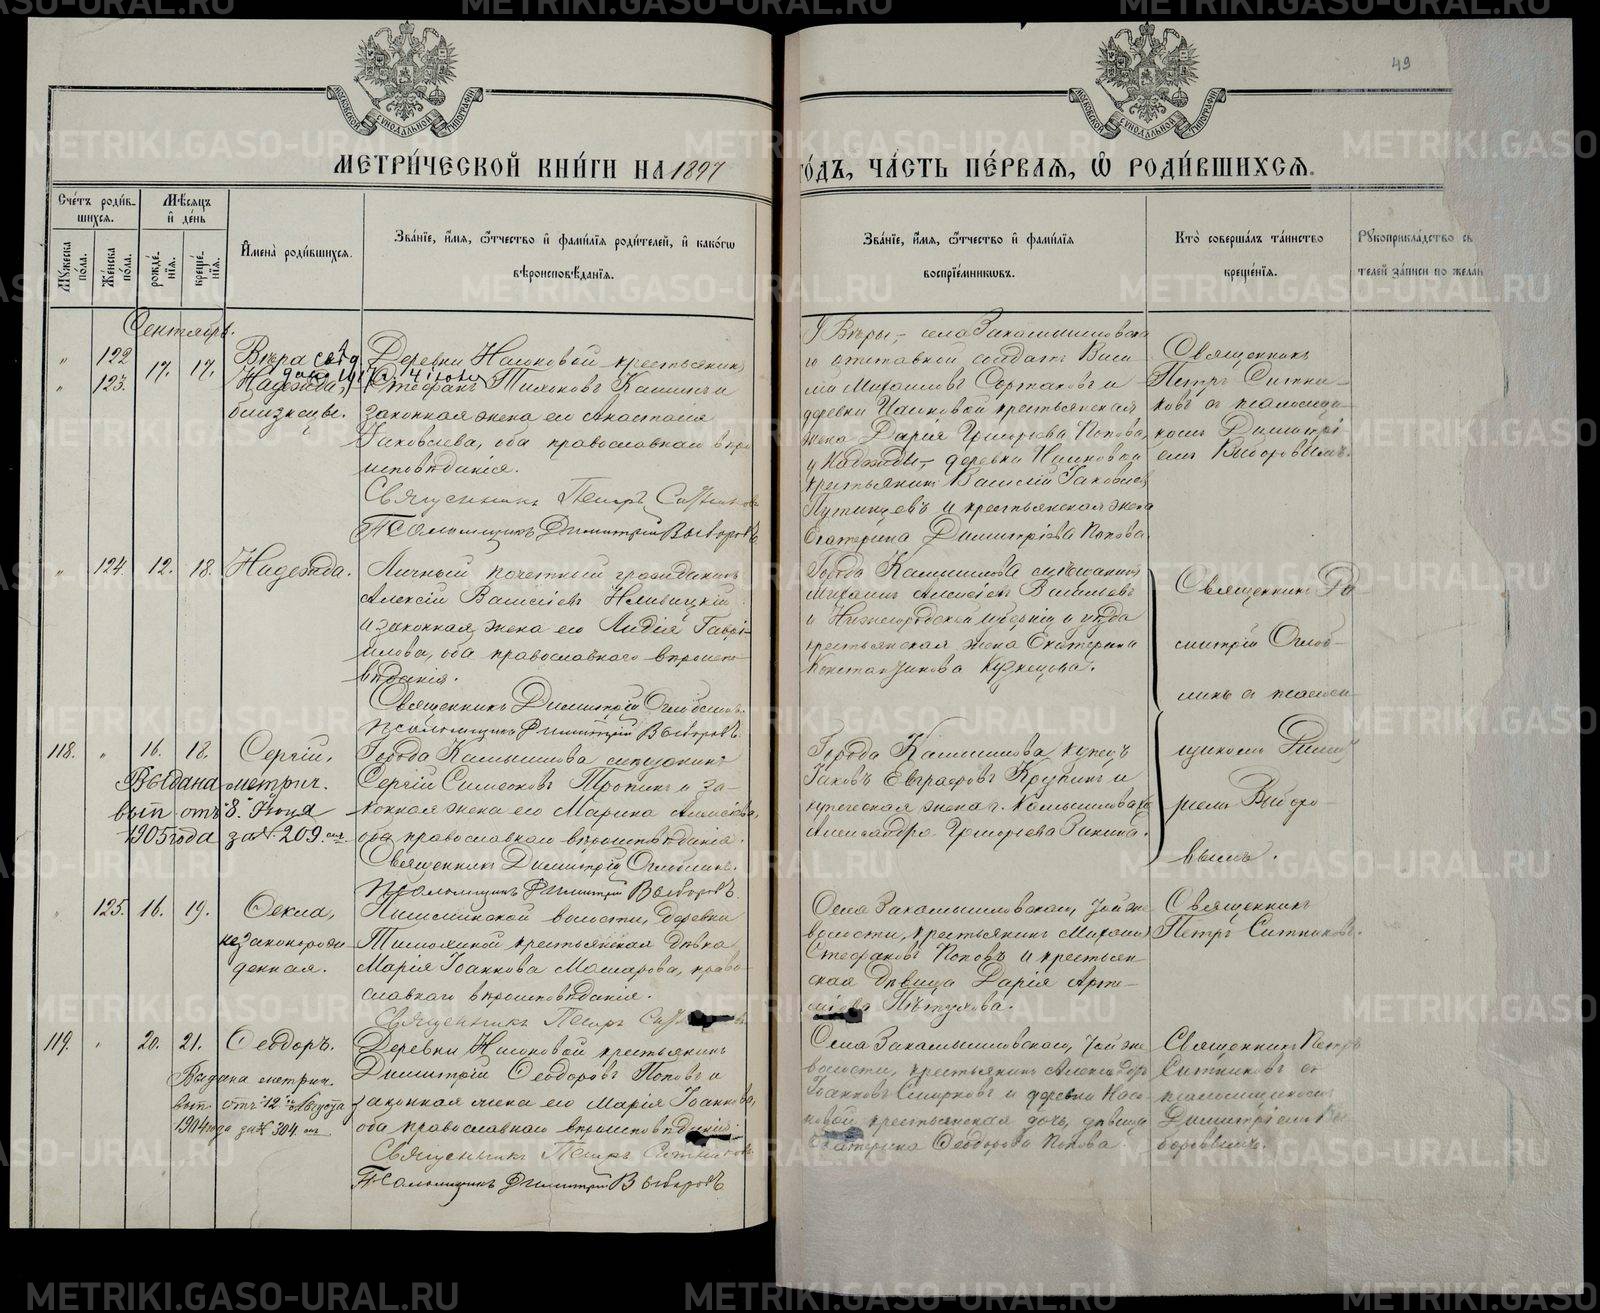 49
МЕТРИ́ЧЕСКОЙ КНИ́ГИ НА 1897
ГО́ДЪ, ЧА́СТЬ ПЕ́РВАЯ, Ѽ РОДИ́ВШИХСЯ.
Сче́тъ роди́в-
шихся.
Мѣ́сяцъ
и҆ де́нь
Мꙋ́жеска
по́ла.
Же́нска
по́ла.
рожде́-
нїя.
креще́-
нїя.
И҆мена̀ роди́вшихся.
Зва́нїе, и҆́мя, ѻ҆́тчество и҆ фами́лїя роди́телей, и҆ како́гѡ
вѣроисповѣ́данїя.
Зва́нїе, и҆́мя, ѻ҆́тчество и҆ фами́лїя
воспрїе́мникѡвъ.
Кто̀ соверша́лъ та́инство
креще́нїя.
Рꙋкоприкла́дство
телей за́писи по
Сентябрь.
122
123.
17. 17.
Вѣра
Надежда,
близнецы.
Деревни Насоновой крестьянинъ
Стефанъ Тихоновъ Калинъ и
законная жена его Анастасія
Іаковлева, оба православнаго вѣро
исповѣданія.
Священникъ Петръ Ситниковъ
Псаломщикъ Димитрій Выборовъ
У Вѣры, – села Закамышловска
го отставной солдатъ Васи
лій Михаиловъ и
деревни Насоновой крестьянская
жена Дарія Григорьева Попова,
у Надежды, – деревни Насоновой
крестьянинъ Василій Іаковлев
и крестьянская жена
Екатерина Димитріева Попова.
Священникъ
Петръ Ситни-
ковъ съ псаломщи-
комъ Димитрі-
емъ Выборовымъ.
124. 12. 18. Надежда.
Личный почетный гражданинъ
Алексій Васильевъ
и законная жена его Лидія Гаврі-
илова, оба православнаго вѣроиспо-
вѣданія.
Священникъ Димитрій Оглоблинъ.
Псаломщикъ Димитрій Выборовъ.
Города Камышлова мѣщанинъ
Михаилъ Алексіевъ Васильевъ
и Нижегородской губерніи и уѣзда
крестьянская жена Екатерина
Константинова Кузнецова.
Священникъ Ди
митрій Оглоб-
линъ съ псалом
щикомъ Димит
ріемъ Выборо-
вымъ.
118. " 16. 18. Сергій.
Выдана метрич.
вып. отъ "8" Іюня
1905 года за № 209.
Города Камышлова мѣщанинъ
Сергій Симеоновъ Тропинъ и за-
конная жена его Марина Алексіева,
оба православнаго вѣроисповѣданія.
Священникъ Димитрій Оглоблинъ.
Псаломщикъ Димитрій Выборовъ.
Города Камышлова купецъ
Іаковъ Евграфовъ и
купеческая жена г. Камышлова
Александра Григорьева Зинина.
" 125. 16. 19. Ѳекла,
незаконорож
денная.
волости, деревни
крестьянская дѣвка
Марія Іоаннова Макарова, право-
славнаго вѣроисповѣданія.
Священникъ Петръ
Села Закамышловскаго, той же
волости, крестьянинъ Михаилъ
Стефановъ Поповъ и крестьян
ская дѣвица Дарія
Пѣтухова.
Священникъ
Петръ Ситниковъ.
119. " 20. 21. Ѳеодоръ.
Выдана метрич.
вып. отъ "12" Августа
1904 года за № 304.
Деревни Насоновой крестьянинъ
Димитрій Ѳеодоровъ Поповъ и
законная жена его Марія Іоаннова,
оба православнаго вѣроисповѣданія.
Священникъ Петръ Ситниковъ
Псаломщикъ Димитрій Выборовъ
Села Закамышловскаго, той же
волости, крестьянинъ Александръ
Іоанновъ Смирновъ и деревни Насо
новой, крестьянская дочь, дѣвица
Екатерина Ѳеодорова Попова.
Священникъ Петръ
Ситниковъ съ
псаломщикомъ
Димитріемъ Вы
боровымъ.
METRIKI.GASO-URAL.RU